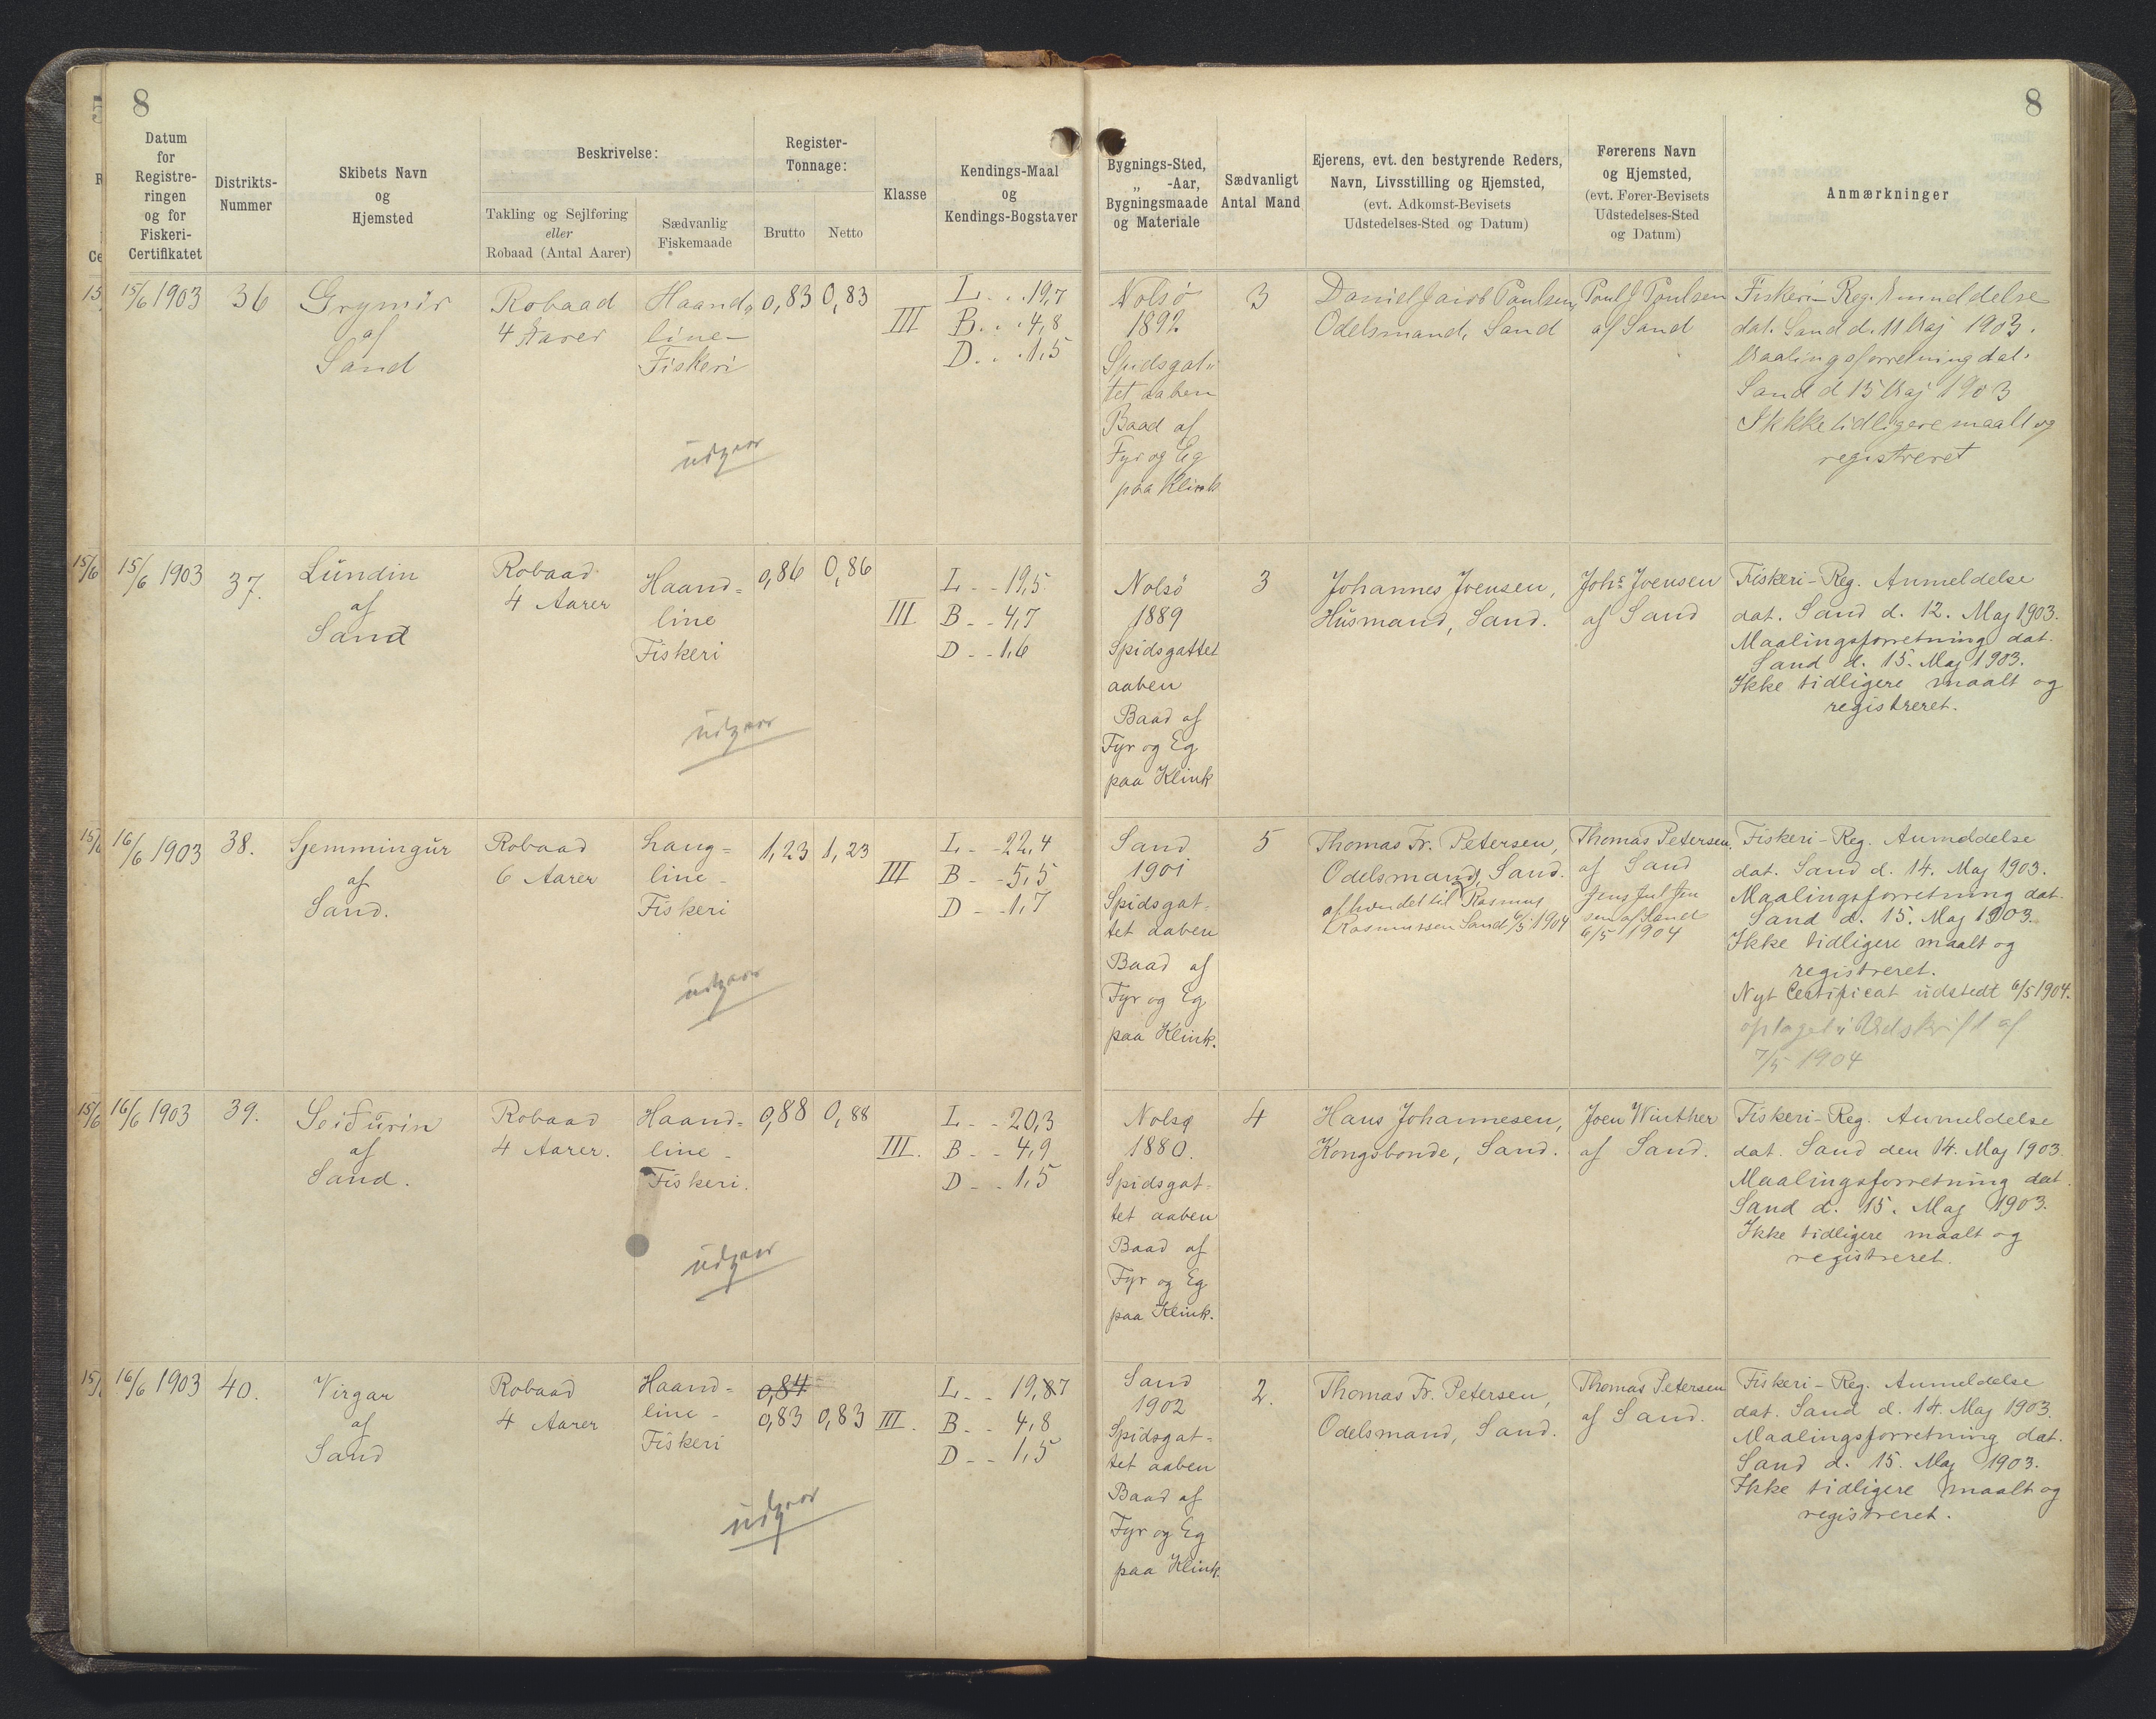 8
8
Datum
for
Registre-
ringen
og for
Fiskeri-
Certifikatet
Distrikts-
Nummer
Skibets Navn
og
Hjemsted
Beskrivelse:
Takling og Sejlføring
eller
Robaad (Antal Aarer)
Sædvanlig
Fiskemaade
Register-
Tonnage:
Brutto
Netto
Klasse
Kendings-Maal
og
Kendings-Bogstaver
Bygnings-Sted,
„ -Aar,
Bygningsmaade
og Materiale
Sædvanligt
Antal Mand
Ejerens, evt. den bestyrende Reders,
Navn, Livsstilling og Hjemsted,
(evt. Adkomst-Bevisets
Udstedelses-Sted og Datum)
Førerens Navn
og Hjemsted,
(evt. Fører-Bevisets
Udstedelses-Sted
og Datum)
Anmærkninger
15/6 1903
36
Grymir
af
Sand
Robaad
4 Aarer
Haand„
line-
Fiskeri
0,83
0,83
III
L. . . 19,7
B. . . 4,8
D. . . 1,5
Nolsö
1892
Spidsgat„
tet aaben
Baad af
Fyr og Eg
paa Klink
3
Daniel Jacob Poulsen,
Odelsmand, Sand
Poul J Poulsen
af Sand
Fiskeri-Reg. Anmeldelse
dat. Sand d. 11 Maj 1903.
Maalingsforretning dat.
Sand d 15 Maj 1903
Ikkke tidligere maalt og
registreret
udgaar
15/6 1903
37.
Lundin
af
Sand
Robaad
4 Aarer
Haand=
line
Fiskeri
0,86
0,86
III
L - - 19,5
B - - 4,7
D - - 1,6
Nolsö
1889
Spidsgattet
aaben
Baad af
Fyr og Eg
paa Klink
3
Johannes Joensen,
Husmand, Sand.
Johs Joensen
af Sand
Fiskeri-Reg. Anmeldelse
dat. Sand d. 12. Maj 1903.
Maalingsforretning dat.
Sand d. 15. Maj 1903.
Ikke tidligere maalt og
registreret.
udgaar
16/6 1903
38.
Sjemmingur
af
Sand.
Robaad
6 Aarer
Lang=
line-
Fiskeri
1,23
1,23
III
L - - 22,4
B - - 5,5
D - - 1,7
Sand
1901
Spidsgat-
tet aaben
Baad af
Fyr og Eg
paa Klink.
5
Thomas Fr. Petersen,
Odelsmand, Sand.
afhændet til Rasmus
Rasmussen Sand 6/5 1904
Thomas Petersen,
af Sand
Jens Jul Jen
sen af Sand
6/5 1904
Fiskeri-Reg. Anmeldelse
dat. Sand d. 14. Maj 1903.
Maalingsforretning dat.
Sand d. 15. Maj 1903.
Ikke tidligere maalt og
registreret.
Nyt Certificat udstedt 6/5 1904.
optaget i Udskrift af
7/5 1904
udgaar
16/6 1903
39.
Seidurin
af
Sand.
Robaad
4 Aarer.
Haand-
line-
Fiskeri.
0,88
0,88
III.
L - - 20,3
B - - 4,9
D - - 1,5
Nolsø
1880.
Spidsgat-
tet aaben
Baad af
Fyr og Eg
paa Klink.
4
Hans Johannesen,
Kongsbonde, Sand.
Joen Winther
af Sand.
Fiskeri-Reg. Anmeldelse
dat. Sand den 14. Maj 1903.
Maalingsforretning dat.
Sand d. 15. Maj 1903.
Ikke tidligere maalt og
registreret.
udgaar
16/6 1903
40.
Virgar
af
Sand
Robaad
4 Aarer
Haand-
line-
Fiskeri
0,84
0,83
0,83
III.
L - - 19,87
B - - 4,8
D - - 1,5
Sand
1902
Spidsgat-
tet aaben
Baad af
Fyr og Eg
paa Klink.
2.
Thomas Fr. Petersen,
Odelsmand, Sand.
Thomas Petersen
af Sand.
Fiskeri-Reg. Anmeldelse
dat. Sand d. 14. Maj 1903.
Maalingsforretning dat.
Sand d. 15. Maj 1903.
Ikke tidligere maalt og
registreret.
udgaar